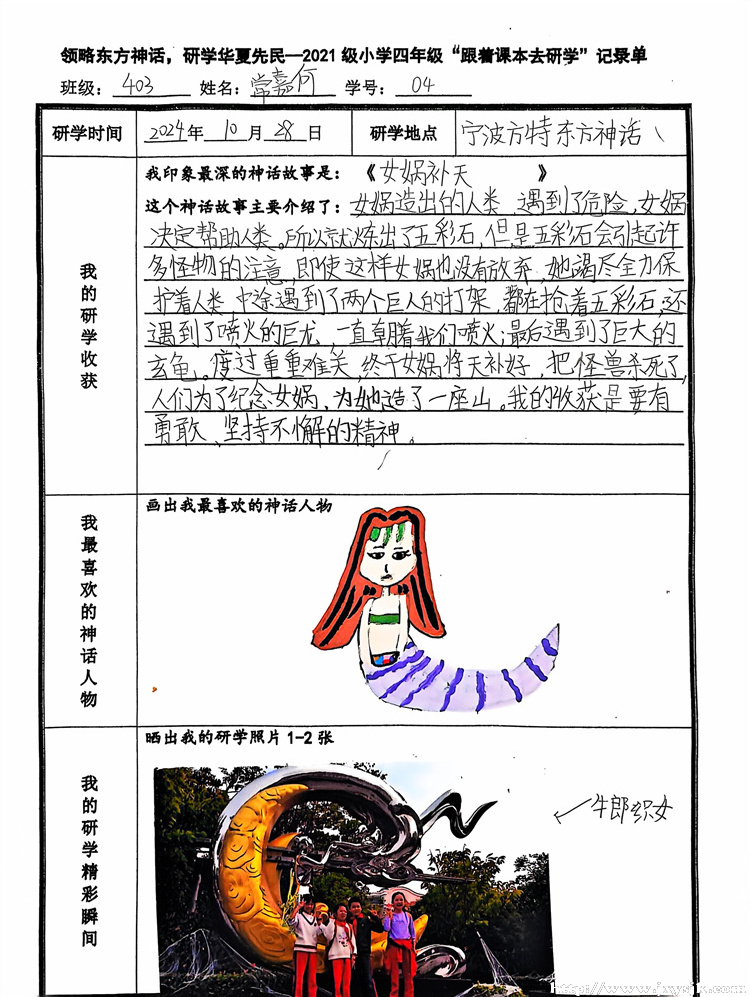 领略东方神话，研学华夏先民—2021级小学四年级“跟着课本去研学”记录单
班级：403 姓名：常嘉何 学号：04
研学时间 2024年10月28日 研学地点 宁波方特东方神话
我的研学收获
我印象最深的神话故事是：《女娲补天》
这个神话故事主要介绍了：女娲造出的人类 遇到了危险，女娲
决定帮助人类。所以就炼出了五彩石，但是五彩石会引起许
多怪物的注意，即使这样女娲也没有放弃，她竭尽全力保
护着人类 中途遇到了两个巨人的打架，都在抢着五彩石，还
遇到了喷火的巨龙，一直朝着我们喷火；最后遇到了巨大的
玄龟。度过重重难关，终于女娲将天补好，把怪兽杀死了，
人们为了纪念女娲，为她造了一座山。我的收获是要有
勇敢、坚持不懈的精神。
我最喜欢的神话人物
画出我最喜欢的神话人物
我的研学精彩瞬间
晒出我的研学照片1-2张
牛郎织女